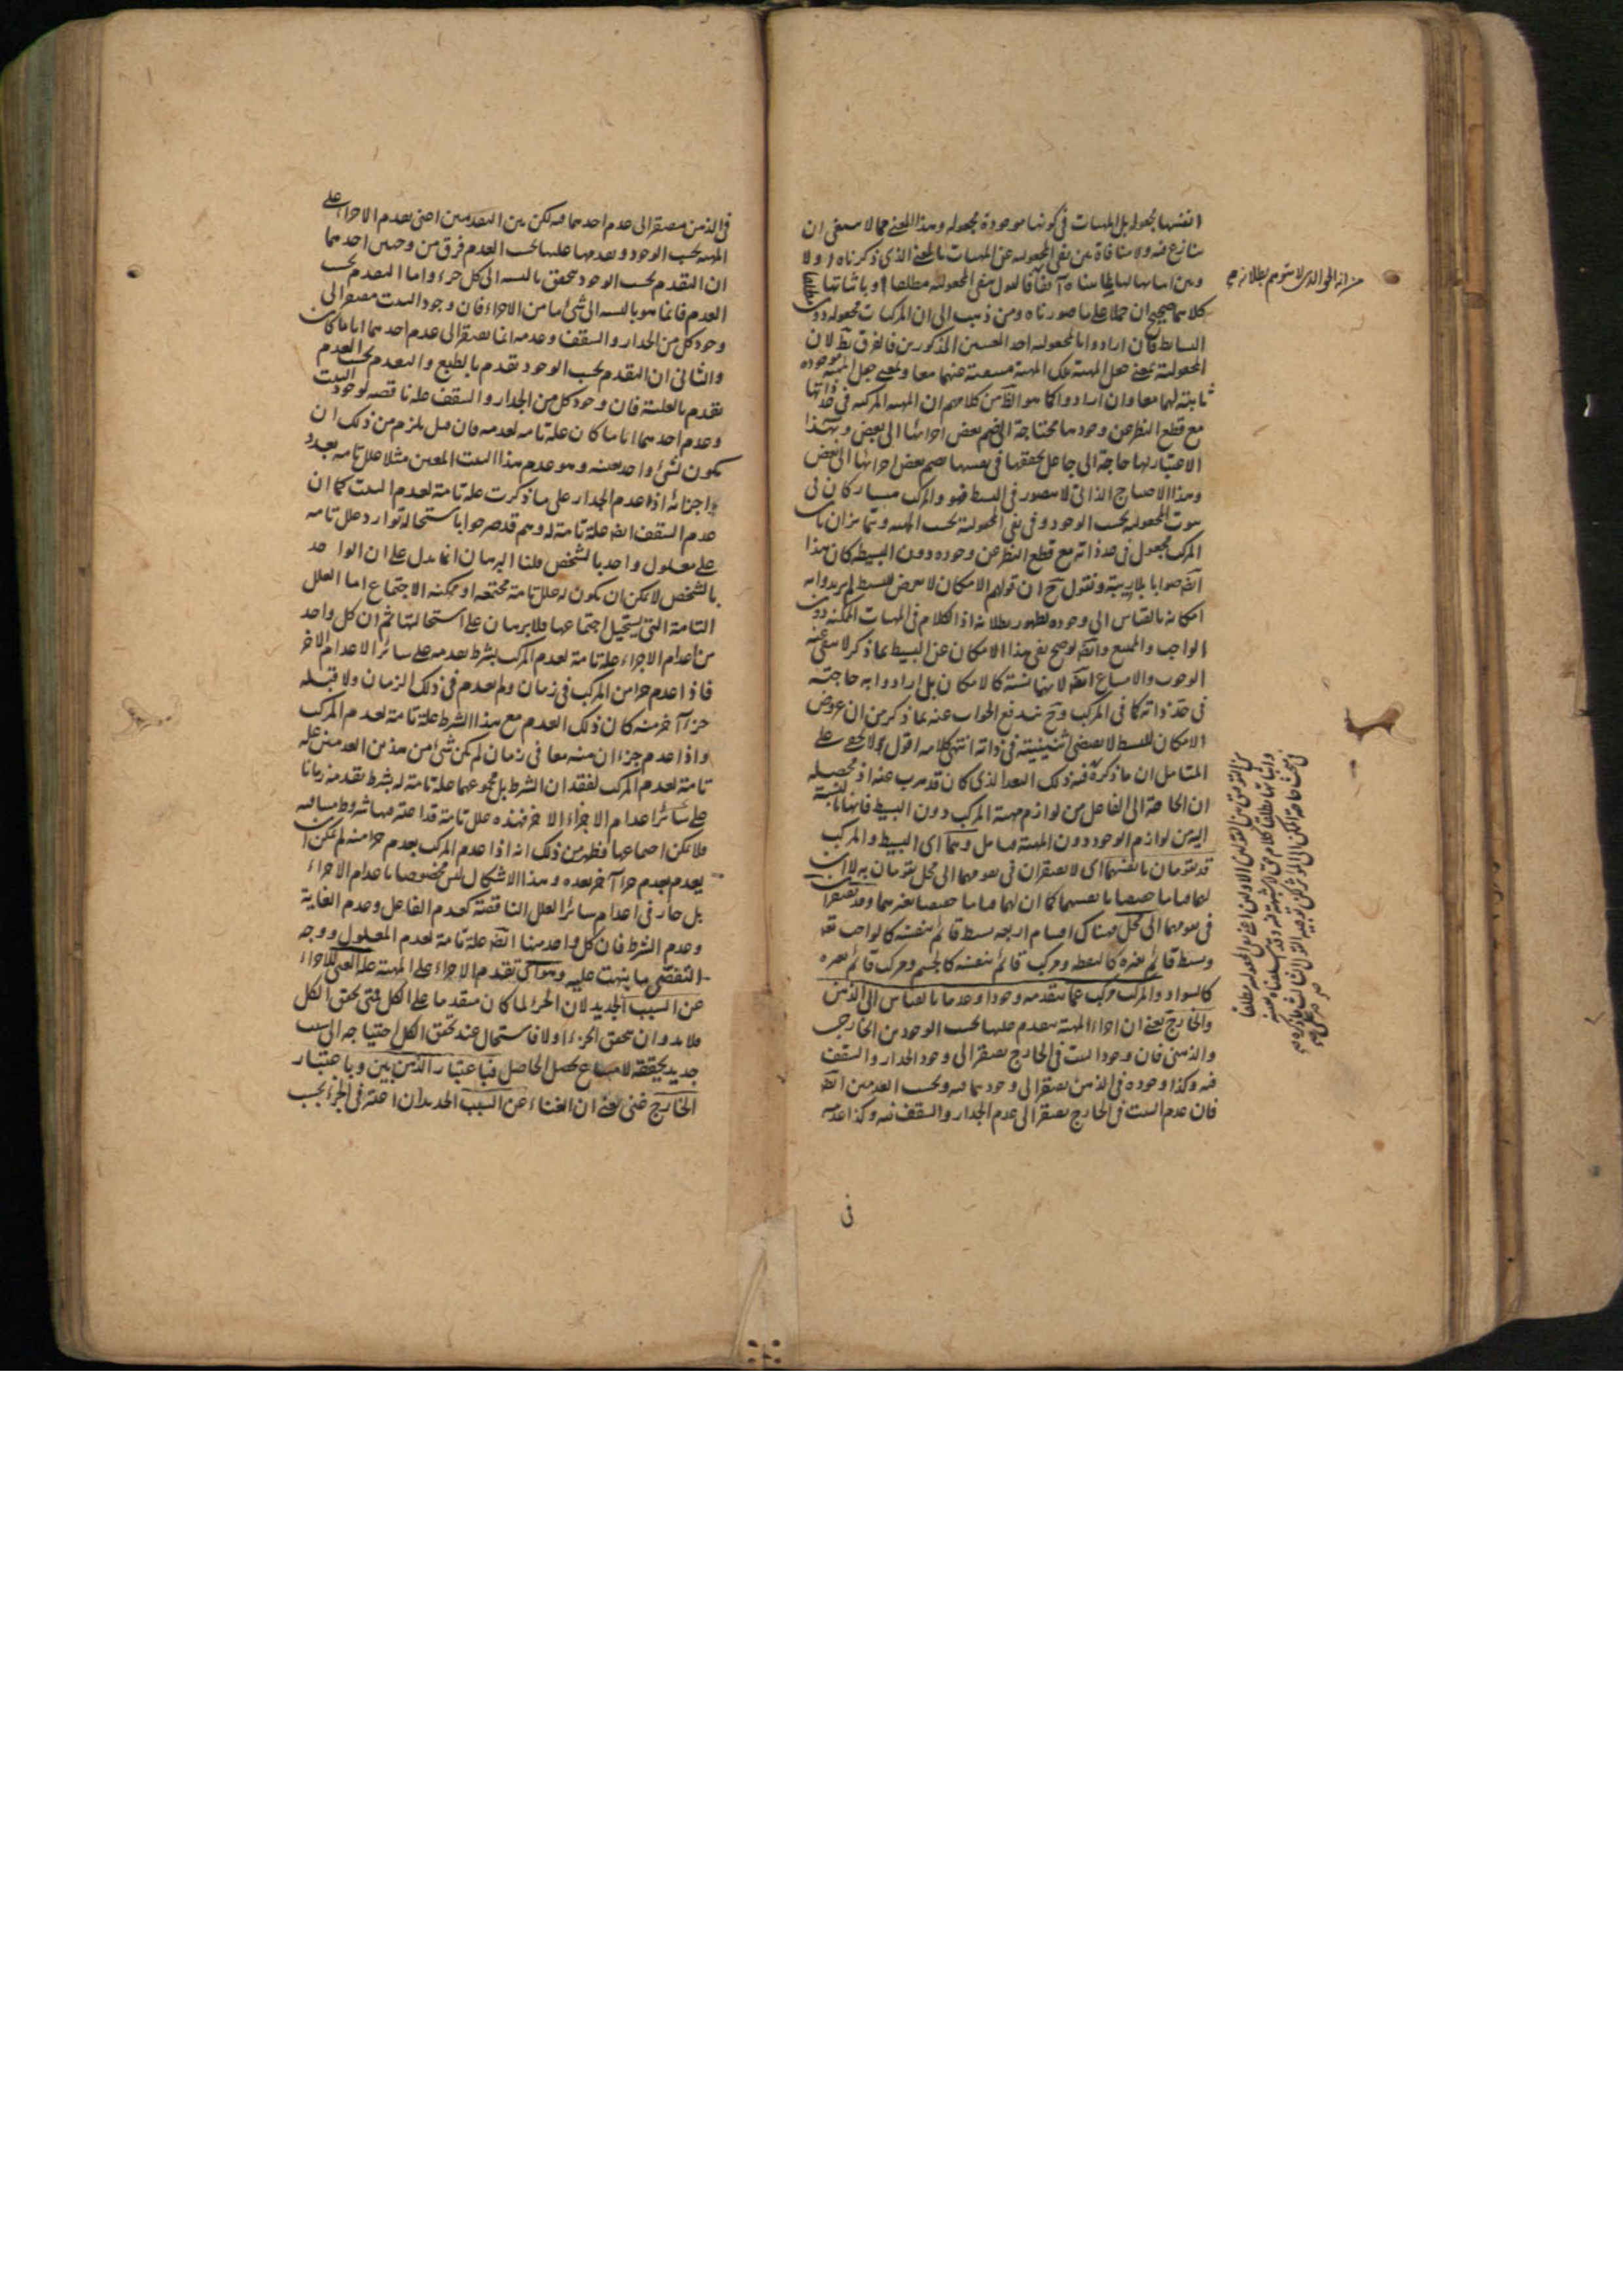 انفسها مجعولة بل المهيات فى كونها موجودة مجعولة وهذا المعنى مما لا ينبغى ان
ينازع فيه ولا منافاة بين نفى المجعولية عن المهيات بالمعنى الذى ذكرناه اولا
وبين اثباتها لها بما بيناه آنفا فالقول بنفى المجعولية مطلقا وباثباتها مطلقا
كلاهما صحيح ان حملا على ما صورناه ومن ذهب الى ان المركبات مجعولة دون
البسائط فان ارادوا بالمجعولية احد المعنيين المذكورين فالفرق بط لان
المجعولية بمعنى جعل المهية تلك المهية منتفية عنهما معا وبمعنى جعل المهية موجودة
ثابتة لهما معا وان ارادوا كما هو الظ من كلامهم ان المهية المركبة فى حد ذاتها
مع قطع النظر عن وجودها محتاجة الى ضم بعض اجزائها الى بعض وبهذا
الاعتبار لها حاجة الى جاعل يحققها فى نفسها بضم بعض اجزائها الى بعض
وهذا الاحتياج الذاتى لا يتصور فى البسيط فهو والمركب متشاركان فى
ثبوت المجعولية بحسب الوجود وفى نفى المجعولية بحسب المهية ويتمايزان بان
المركب مجعول فى حد ذاته مع قطع النظر عن وجوده دون البسيط كان هذا
ايض صوابا بلا ريبة ونقول ح ان قولهم الامكان لا يعرض للبسيط لم يريدوا به
امكانه بالقياس الى وجوده لظهور بطلانه اذ الكلام فى المهيات الممكنة دون
الواجب والممتنع وايض لو صح نفى هذا الامكان عن البسيط بما ذكر لانتفى عنه
الوجوب والامتناع ايض لانهما نسبة كالامكان بل ارادوا به حاجته
فى حد ذاته كما فى المركب وح يندفع الجواب عنه بما ذكر من ان عروض
الامكان للبسيط لا يقتضى اثنينية فى ذاته انتهى كلامه اقول لا يخفى على
المتامل ان ما ذكره فيه ذلك البعد الذى كان قد هرب عنه اذ محصله
ان الحاجة الى الفاعل من لوازم مهية المركب دون البسيط فانها بالنسبة
اليه من لوازم الوجود دون المهية تامل وهما اى البسيط والمركب
قد يقومان بانفسهما اى لا يفتقران فى تقومهما الى محل يقومان به لا ان
لهما قياما حقيقيا بانفسهما كما ان لهما قياما حقيقيا بغيرهما وقد يفتقران
فى تقومهما الى محل فهناك اقسام اربعة بسيط قائم بنفسه كالواجب تع
وبسيط قائم بغيره كالنقطة ومركب قائم بنفسه كالجسم ومركب قائم بغيره
كالسواد والمركب مركب عما يتقدمه وجودا وعدما بالقياس الى الذهن
والخارج يعنى ان اجزاء المهية يتقدم عليها بحسب الوجود من الخارجى
والذهنى فان وجود البيت فى الخارج يفتقر الى وجود الجدار والسقف
فيه وكذا وجوده فى الذهن يفتقر الى وجودهما فيه وبحسب العدمين ايض
فان عدم البيت فى الخارج يفتقر الى عدم الجدار والسقف فيه وكذا عدمه
فى
فى الذهن مفتقر الى عدم احدهما فيه لكن بين التقدمين اعنى تقدم الاجزاء على
المهية بحسب الوجود وتقدمها عليها بحسب العدم فرق من وجهين احدهما
ان التقدم بحسب الوجود يتحقق بالنسبة الى كل جزء واما التقدم بحسب
العدم فانما هو بالنسبة الى شئ ما من الاجزاء فان وجود البيت مفتقر الى
وجود كل من الجدار والسقف وعدمه انما يفتقر الى عدم احدهما ايا ما كان
والثانى ان التقدم بحسب الوجود تقدم بالطبع والتقدم بحسب العدم
تقدم بالعلية فان وجود كل من الجدار والسقف علة ناقصة لوجود البيت
وعدم احدهما ايا ما كان علة تامة لعدمه فان قيل يلزم من ذلك ان
يكون لشئ واحد بعينه وهو عدم هذا البيت المعين مثلا علل تامة بعدد
اجزائه اذ عدم الجدار على ما ذكرت علة تامة لعدم البيت كما ان
عدم السقف ايض علة تامة له وهم قد صرحوا باستحالة توارد علل تامة
على معلول واحد بالشخص قلنا البرهان انما يدل على ان الواحد
بالشخص لا يمكن ان يكون له علل تامة مجتمعة او ممكنة الاجتماع اما العلل
التامة التى يستحيل اجتماعها فلا برهان على استحالتها ثم ان كل واحد
من اعدام الاجزاء علة تامة لعدم المركب بشرط تقدمه على سائر الاعدام الاخر
فاذا عدم جزء من المركب فى زمان ولم يعدم فى ذلك الزمان ولا قبله
جزء آخر منه كان ذلك العدم مع هذا الشرط علة تامة لعدم المركب
واذا عدم جزءان منه معا فى زمان لم يكن شئ من هذين العدمين علة
تامة لعدم المركب لفقدان الشرط بل مجموعهما علة تامة له بشرط تقدمه زمانا
على سائر اعدام الاجزاء الاخر فهذه علل تامة قد اعتبر فيها شروط متنافية
فلا يمكن اجتماعها فظهر من ذلك انه اذا عدم المركب بعدم جزء منه لم يمكن ان
يعدم بعدم جزء آخر بعده وهذا الاشكال ليس مخصوصا باعدام الاجزاء
بل جار فى اعدام سائر العلل الناقصة كعدم الفاعل وعدم الغاية
وعدم الشرط فان كل واحد منها ايض علة تامة لعدم المعلول ووجه
التفصى ما ينهت عليه وهو اى تقدم الاجزاء على المهية علة الغنى للاجزاء
عن السبب الجديد لان الجزء لما كان متقدما على الكل فمتى تحقق الكل
فلا بد وان يتحقق الجزء اولا فاستحال عند تحقق الكل احتياجه الى سبب
جديد يحققه لامتناع تحصيل الحاصل فباعتبار الذهن بين وباعتبار
الخارج غنى يعنى ان الغناء عن السبب الجديد ان اعتبر فى الجزء بحسب